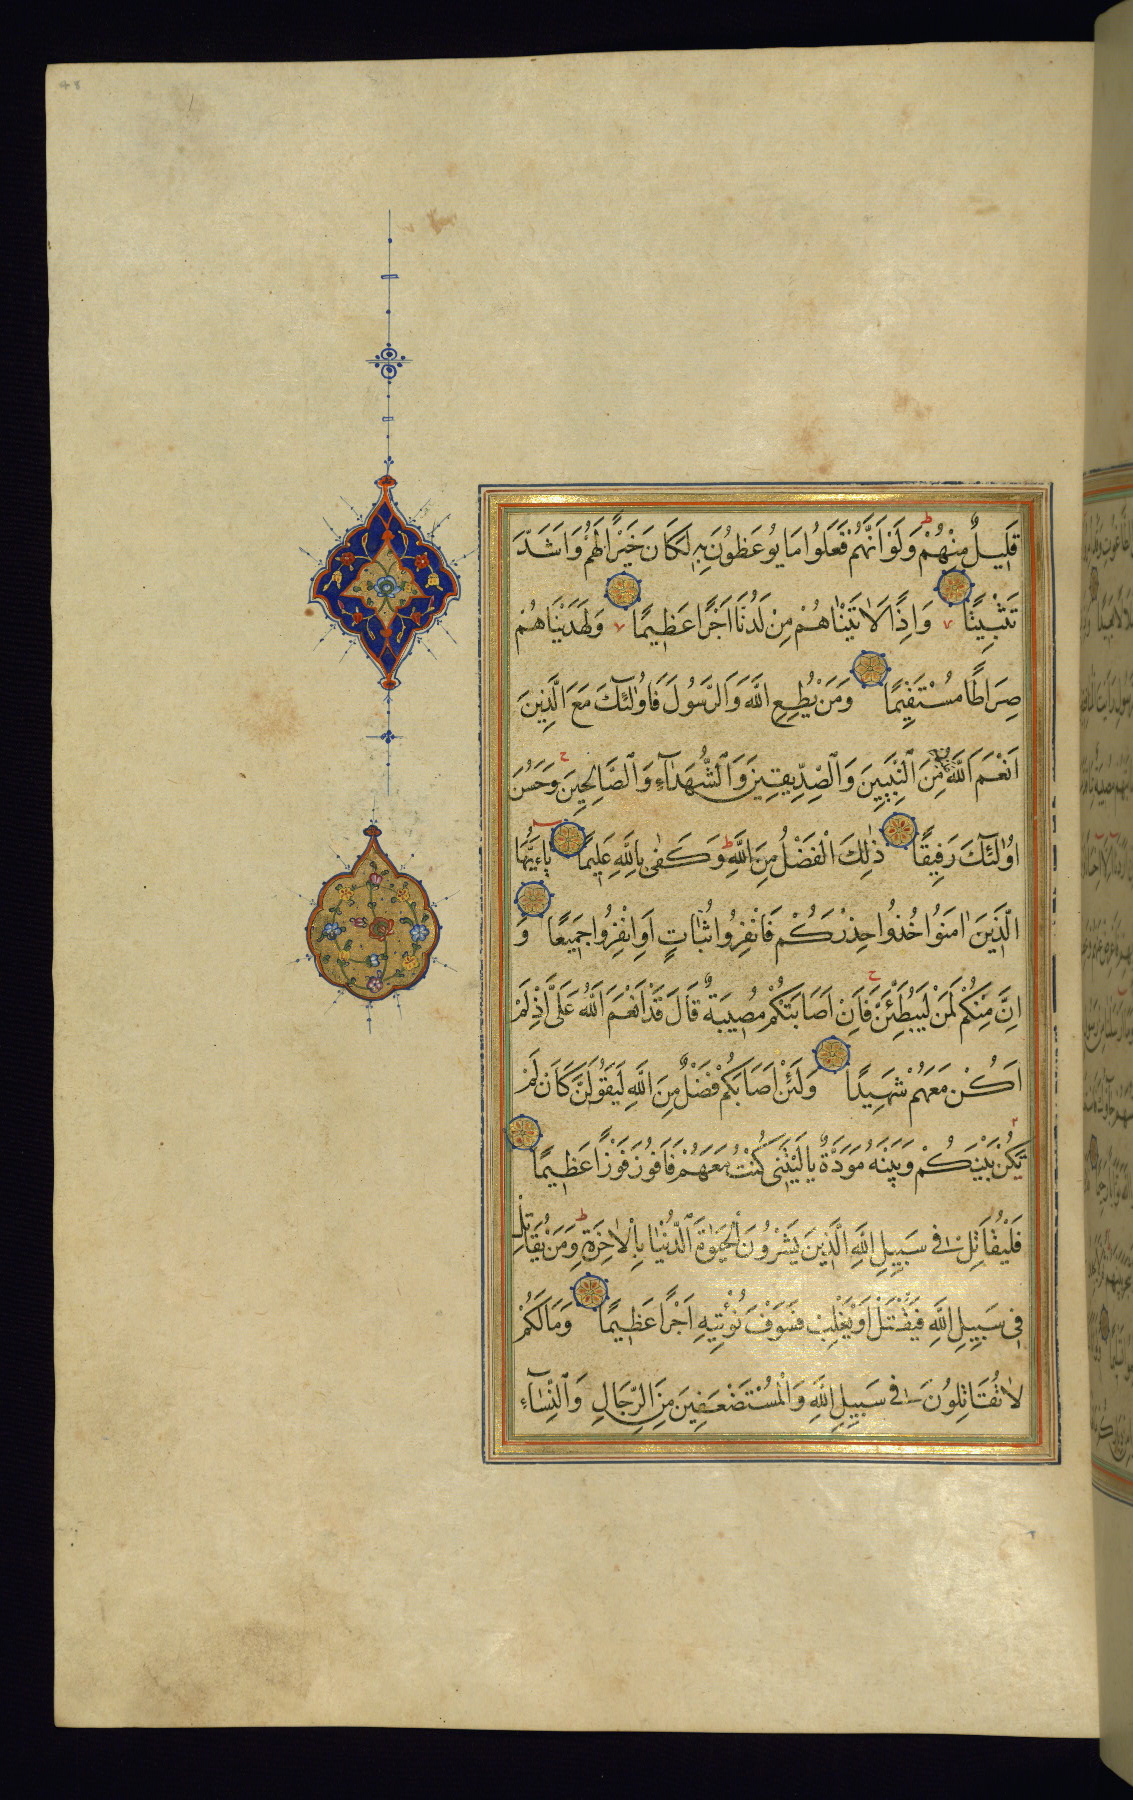 قَلِيلٌ مِنْهُمْ وَلَوْ اَنَّهُمْ فَعَلُوا مَا يُوعَظُونَ بِهِ لَكَانَ خَيْرًا لَهُمْ وَاَشَدَّ
تَثْبِيتًا وَاِذًا لَاٰتَيْنَاهُمْ مِنْ لَدُنَّا اَجْرًا عَظِيمًا وَلَهَدَيْنَاهُمْ
صِرَاطًا مُسْتَقِيمًا وَمَنْ يُطِعِ اللّٰهَ وَالرَّسُولَ فَاُولٰٓئِكَ مَعَ الَّذِينَ
اَنْعَمَ اللّٰهُ عَلَيْهِمْ مِنَ النَّبِيِّينَ وَالصِّدِّيقِينَ وَالشُّهَدَآءِ وَالصَّالِحِينَ وَحَسُنَ
اُولٰٓئِكَ رَفِيقًا ذٰلِكَ الْفَضْلُ مِنَ اللّٰهِ وَكَفٰى بِاللّٰهِ عَلِيمًا يٰاَيُّهَا
الَّذِينَ اٰمَنُوا خُذُوا حِذْرَكُمْ فَانْفِرُوا ثُبَاتٍ اَوِ انْفِرُوا جَمِيعًا وَ
اِنَّ مِنْكُمْ لَمَنْ لَيُبَطِّئَنَّ فَاِنْ اَصَابَتْكُمْ مُصِيبَةٌ قَالَ قَدْ اَنْعَمَ اللّٰهُ عَلَيَّ اِذْ لَمْ
اَكُنْ مَعَهُمْ شَهِيدًا وَلَئِنْ اَصَابَكُمْ فَضْلٌ مِنَ اللّٰهِ لَيَقُولَنَّ كَاَنْ لَمْ
تَكُنْ بَيْنَكُمْ وَبَيْنَهُ مَوَدَّةٌ يَا لَيْتَنِي كُنْتُ مَعَهُمْ فَاَفُوزَ فَوْزًا عَظِيمًا
فَلْيُقَاتِلْ فِي سَبِيلِ اللّٰهِ الَّذِينَ يَشْرُونَ الْحَيٰوةَ الدُّنْيَا بِالْاٰخِرَةِ وَمَنْ يُقَاتِلْ
فِي سَبِيلِ اللّٰهِ فَيُقْتَلْ اَوْ يَغْلِبْ فَسَوْفَ نُؤْتِيهِ اَجْرًا عَظِيمًا وَمَا لَكُمْ
لَا تُقَاتِلُونَ فِي سَبِيلِ اللّٰهِ وَالْمُسْتَضْعَفِينَ مِنَ الرِّجَالِ وَالنِّسَآءِ